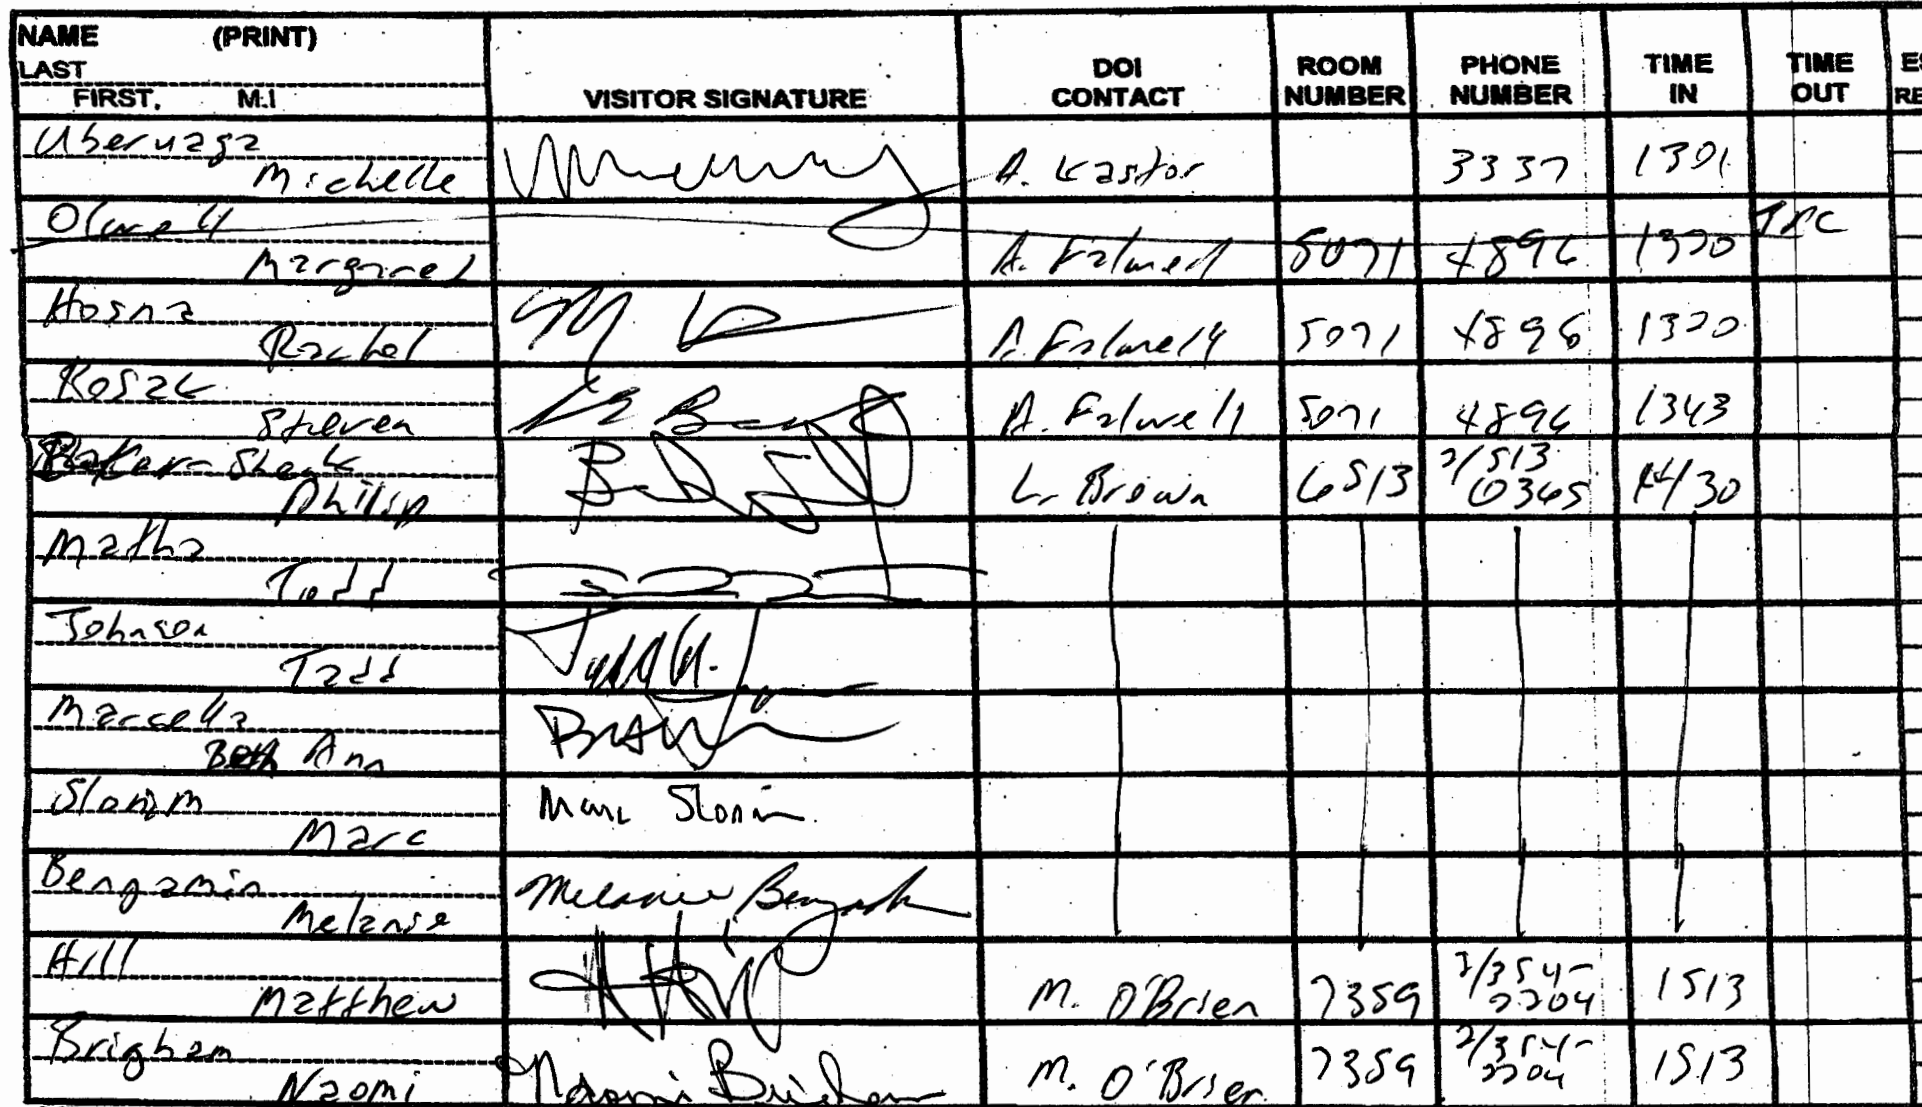 NAME (PRINT)
LAST
FIRST, M.I
VISITOR SIGNATURE
DOI CONTACT
ROOM NUMBER
PHONE NUMBER
TIME IN
TIME OUT
Uberuaga
Michelle
A. Kastor 3337 1301
Margaret
A. Falwell 5071 4896 1320
Hosna
Rachel
A. Falwell 5071 4896 1320
Kosak
Steven
A. Falwell 5071 4896 1343
Baker-Shenk
Philip
L. Brown 6513 2/513 0365 1430
Matha
Todd
Johnson
Tadd
Marcella
Beth Ann
Slonim
Marc
Marc Slonim
Bengamin
Melanie
Melanie
Hill
Matthew
M. O'Brien 7359 2/354-2204 1513
Brigham
Naomi
Naomi Brigham
M. O'Brien 7359 2/354-2204 1513